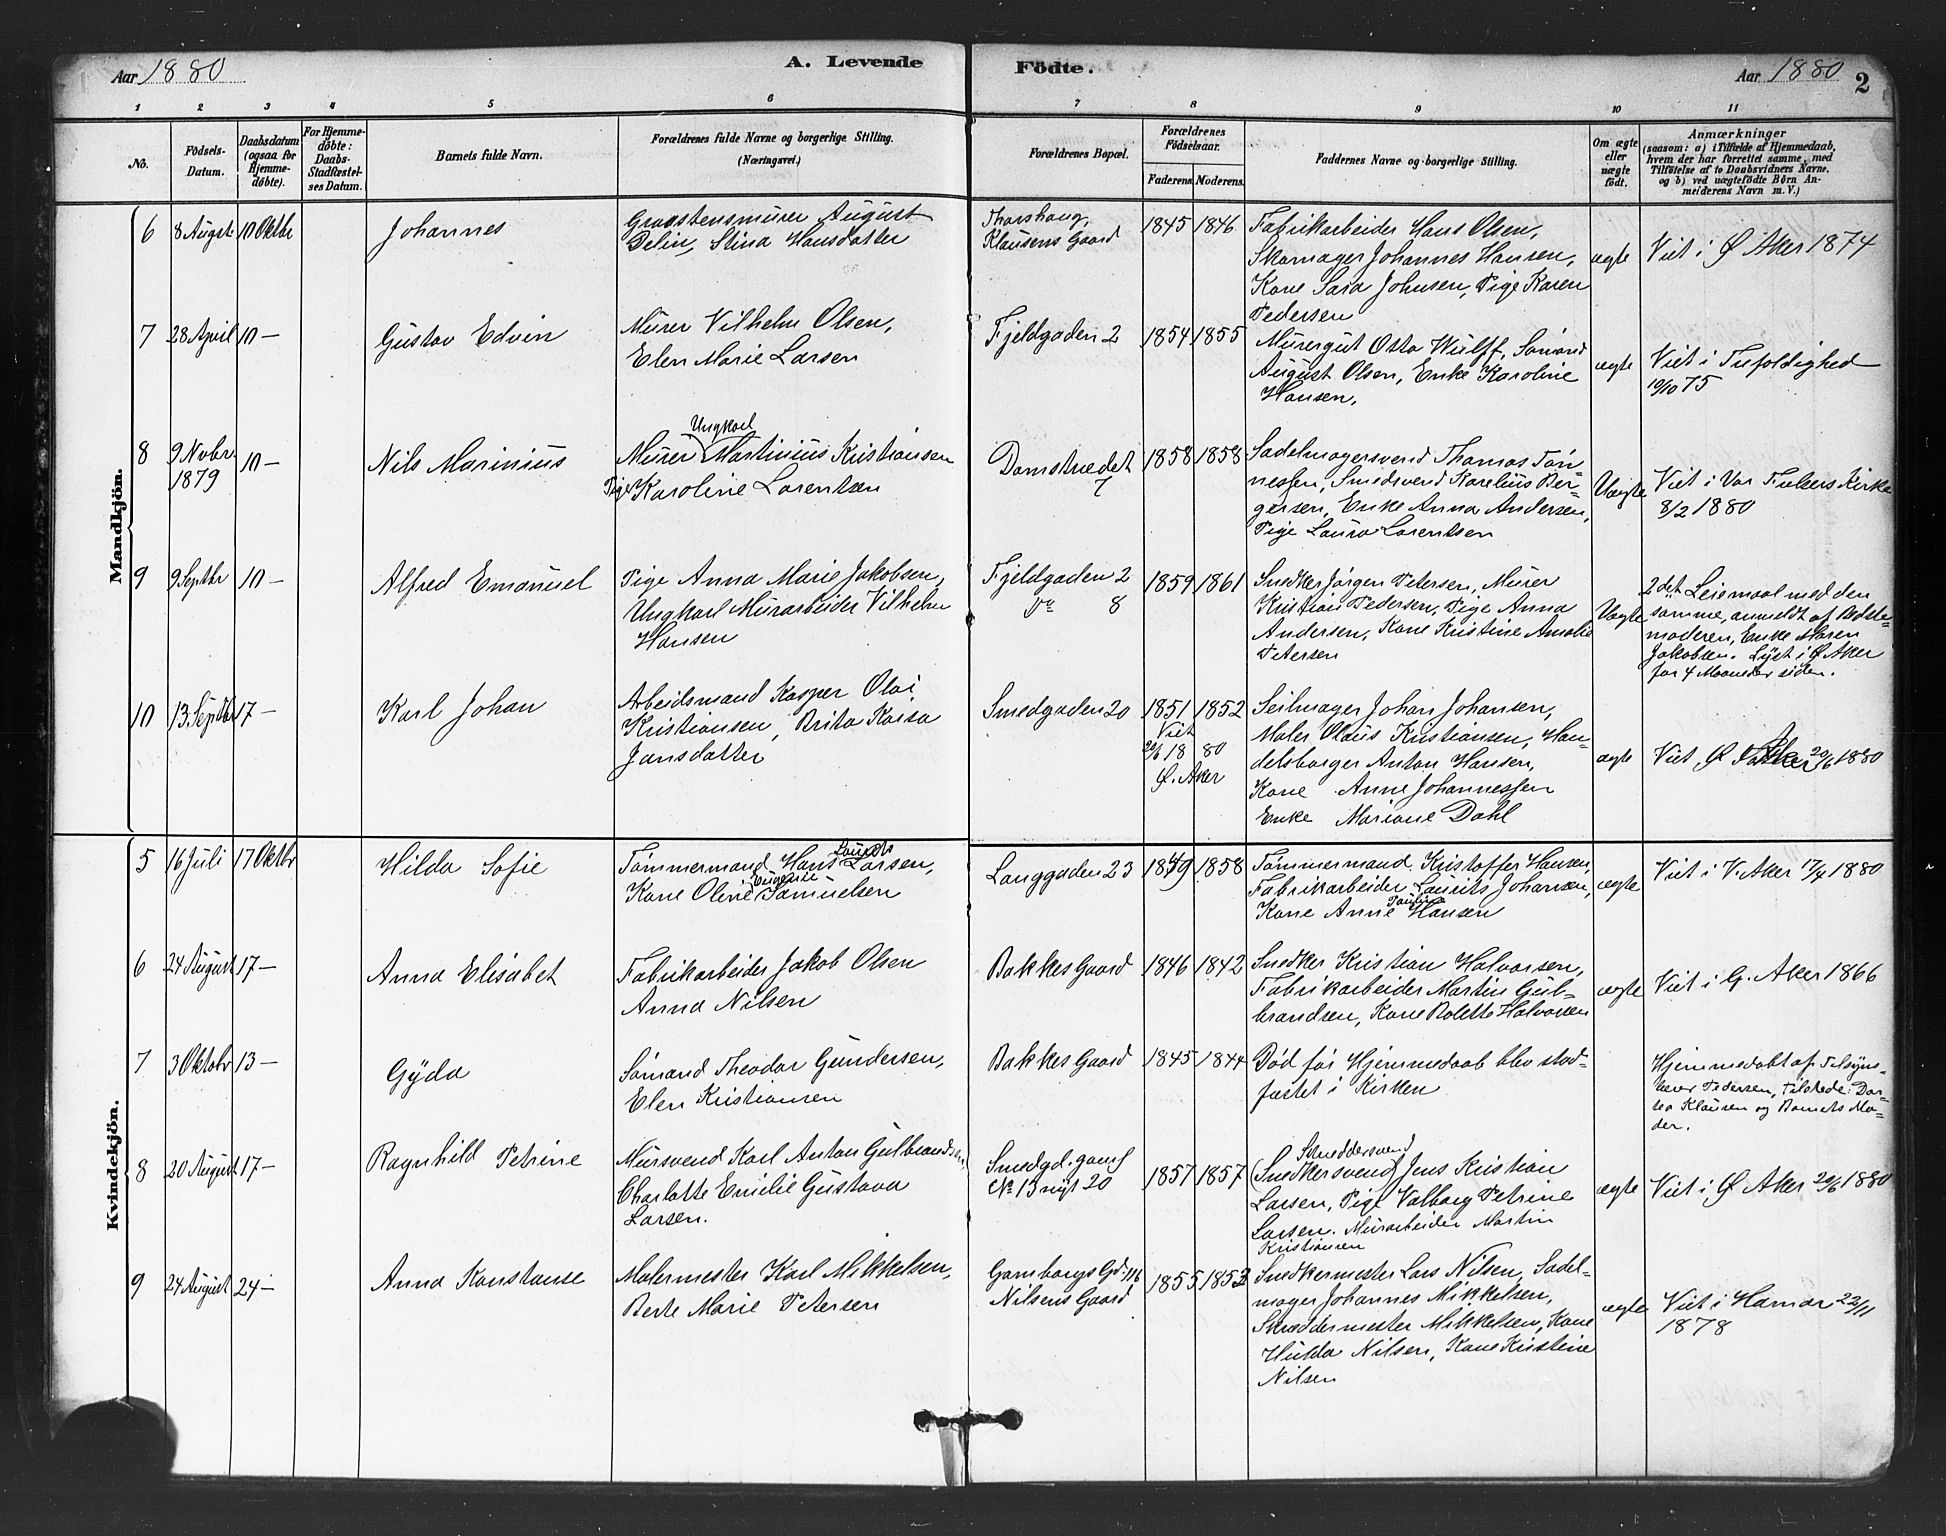 Aar 1880
A. Levende
Födte.
Aar 1880
2
1 2 3 4 5 6 7 8 9 10 11
No.
Födsels-Datum.
Daabsdatum (ogsaa for Hjemme-döbte).
For Hjemme-döbte: Daabs-Stadfæstel-ses Datum.
Barnets fulde Navn.
Forældrenes fulde Navne og borgerlige Stilling.
(Næringsvei.)
Forældrenes Bopæl.
Forældrenes Födselsaar.
Faderens. Moderens.
Faddernes Navne og borgerlige Stilling.
Om ægte eller uægte födt.
Anmærkninger
(saasom: a) i Tilfælde af Hjemmedaab,
hvem der har forrettet samme, med
Tilföielse af to Daabsvidners Navne.
og b) ved uægtefödte Börn An-
meiderens Navn m. V.)
Mandkjön.
6 8 August 10 Oktbr
Johannes
Graastensmurer August
Delin, Stina Hansdatter
Thorshaug,
Klausens Gaard
1845 1846
Fabrikarbeider Hans Olsen,
Skomager Johannes Hansen,
Kone Sara Johnsen, Pige Karen
Pedersen
ægte
Viet i Ø Aker 1874
7 28 April 10 –
Gustav Edvin
Murer Vilhelm Olsen,
Elen Marie Larsen
Fjeldgaden 2
1854 1855
Murergut Otto Wulff, Sømand
August Olsen, Enke Karoline
Hansen,
ægte
Viet i Trefoldighed
10/10 75
8 9 Novbr 1879 10 –
Nils Marinius
Ungkarl
Murer Martinius Kristiansen
Pige Karoline Lorentsen
Damstrædet
7
1858 1858
Sadelmagersvend Thomas Tøn-
nessen, Smedsvend Karelius Ber-
gersen, Enke Anna Andersen,
Pige Laura Lorentsen
Uægte
Viet i Vor Frelsers Kirke
8/2 1880
9 9 Septbr 10 –
Alfred Emanuel
Pige Anna Marie Jakobsen,
Ungkarl Murarbeider Vilhelm
Hansen
Fjeldgaden 2
Do 8
1859 1861
Snedker Jørgen Petersen, Murer
Kristian Pedersen, Pige Anna
Andersen, Kone Kristine Amalie
Petersen
Uægte
2det Leiemaal med den
samme, anmeldt af Bedste-
moderen, Enke Maren
Jakobsen. Lyst i Ø Aker
for 4 Maaneder siden.
10 13. Septbr 17 –
Karl Johan
Arbeidsmand Kasper Olai
Kristiansen, Brita Kaisa
Jansdatter
Smedgaden 20
1851 1852
Viet
20/6 18 80
Ø. Aker
Seilmager Johan Johansen,
Maler Olaus Kristiansen, Han-
delsborger Anton Hansen,
Kone Anne Johannessen
Enke Mariane Dahl
ægte
Viet, Ø Aker 20/6 1880
Kvindekjön.
5 16 Juli 17 Oktbr
Hilda Sofie
Laurits
Tømmermand Hans Larsen,
Eugenie
Kone Oline Samuelsen
Langgaden 23
1849 1858
Tømmermand Kristoffer Hansen,
Fabrikarbeider Laurits Johansen,
Pauline
Kone Anne Hansen
ægte
Viet i V. Aker 17/4 1880
6 24 August 17 –
Anna Elisabet
Fabrikarbeider Jakob Olsen
Anna Nilsen
Bakkes Gaard
1846 1842
Snedker Kristian Halvorsen,
Fabrikarbeider Martin Gul-
brandsen, Kone Bolette Halvorsen
ægte
Viet i G. Aker 1866
7 3 Oktobr 13 –
Gyda
Sømand Theodor Gundersen,
Elen Kristiansen
Bakkes Gaard
1845 1844
Død før Hjemmedaab blev stad-
fæstet i Kirken
Hjemmedøbt af Tilsyns-
hever Pedersen, Tilstede: Dor-
tea Klausen og Barnets Mo-
der.
8 20 August 17 –
Ragnhild Petrine
Mursvend Karl Anton Gulbrandsen,
Charlotte Emilie Gustava
Larsen.
Smedgd. gaml
No 13 nyt 20
1857 1857
Skræddersvend
(Snedkersvend) Jens Kristian
Larsen, Pige Valborg Petrine
Larsen. Murarbeider Martin
Kristiansen
ægte
Viet i Ø Aker 20/6 1880
9 24 August 24 –
Anna Konstanse
Malermester Karl Mikkelsen,
Berte Marie Petersen
Gamborgs Gd. 116
Nilsens Gaard
1855 1853
Snedkermester Lars Nilsen, Sadel-
mager Johannes Mikkelsen,
Skræddermester Mikkelsen, Kone
Hulda Nilsen, Kone Kristine
Nilsen
ægte
Viet i Hamar 22/11
1878